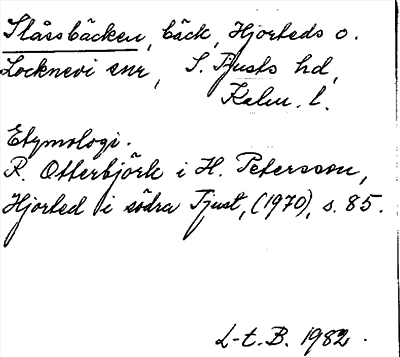 Slåssbäcken, bäck, Hjorteds o.
Locknevi snr, S. Tjusts hd,
Kalm. l.
Etymologi.
R. Otterbjörk i H. Petersson,
Hjorted i södra Tjust, (1970), s. 85.
L-t. B. 1982.